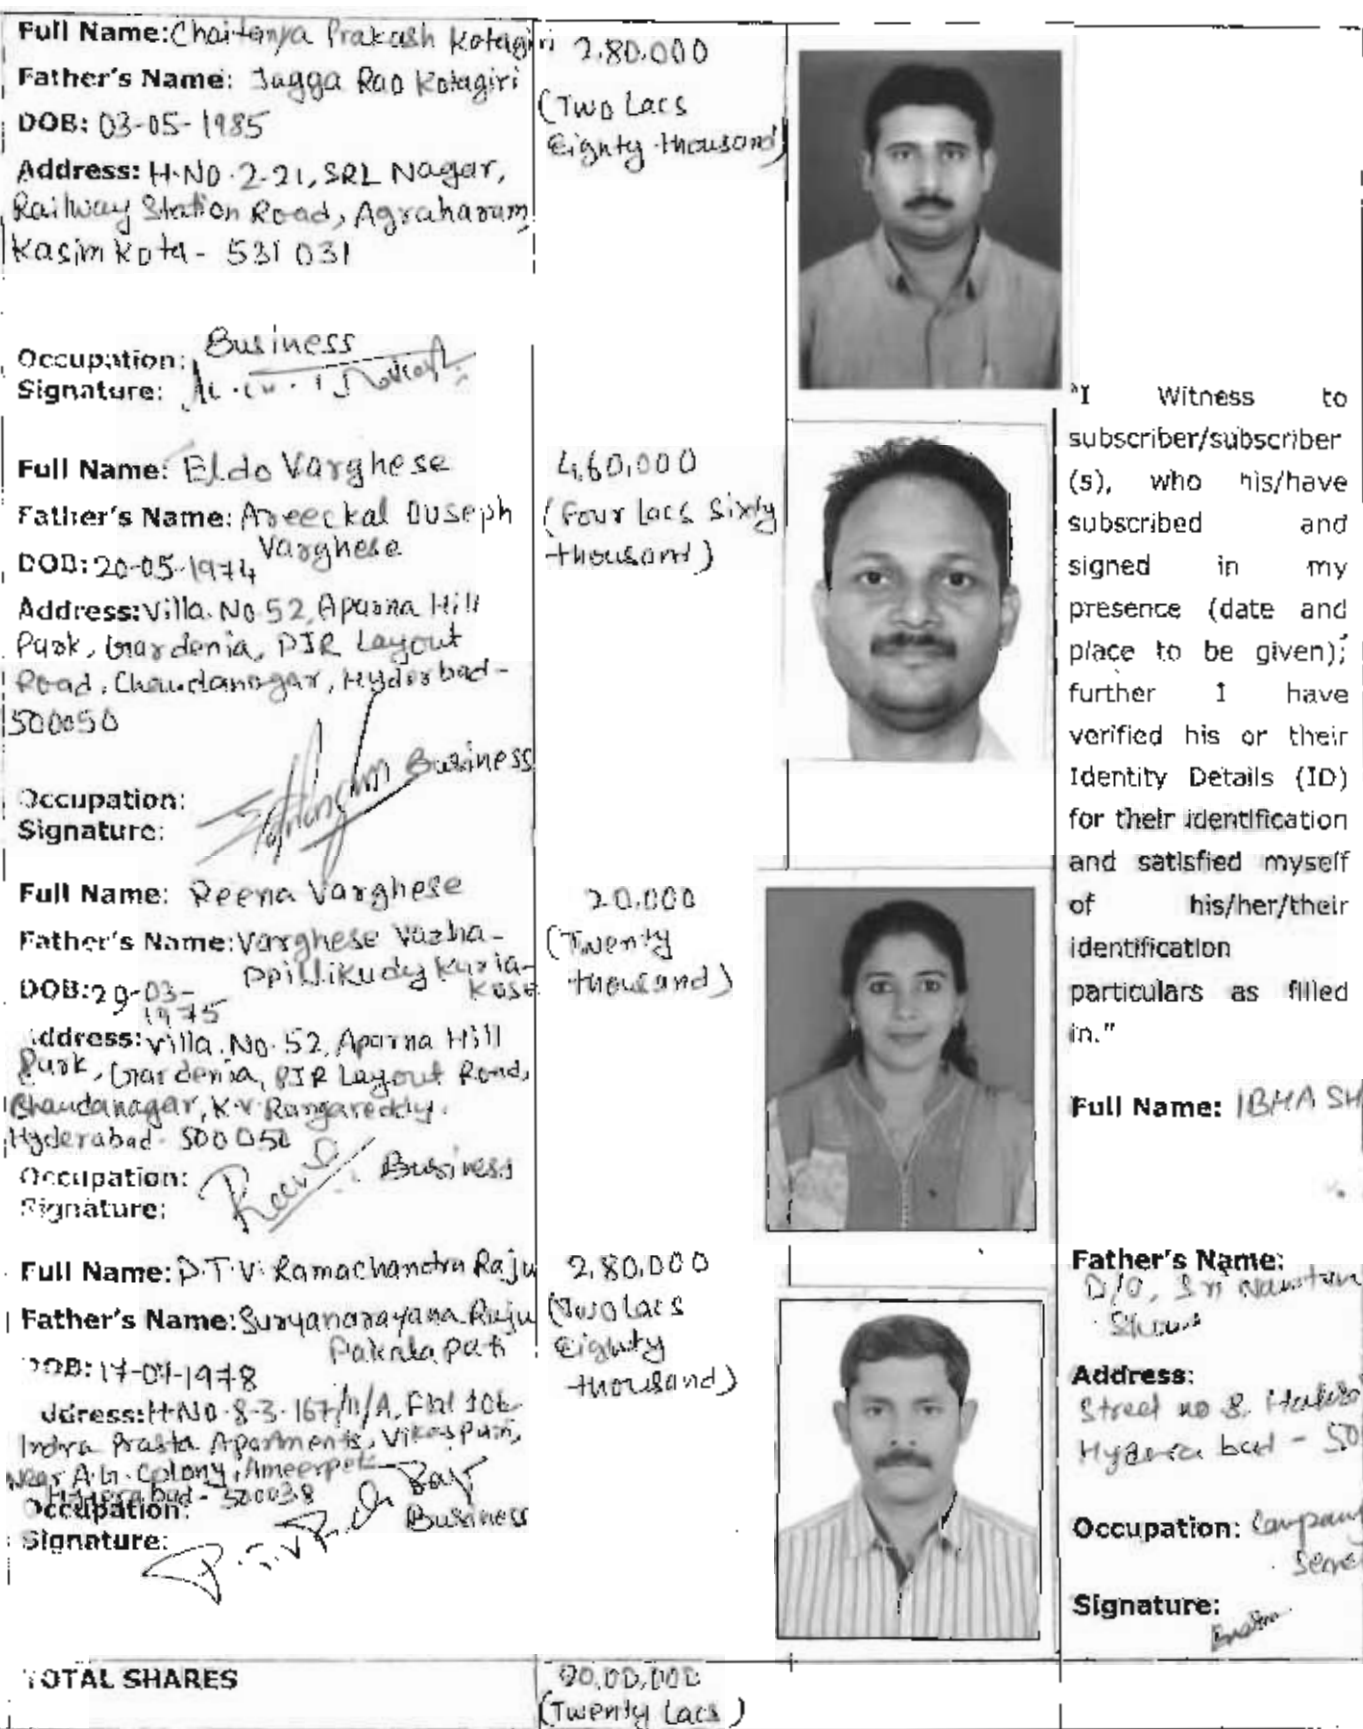 Full Name: Chaitanya Prakash Kotagiri
Father's Name: Jagga Rao Kotagiri
DOB: 03-05-1985
Address: H.NO.2-21, SRL Nagar,
Railway Station Road, Agraharam,
Kasimkota - 531 031
2,80,000
(Two Lacs
Eighty thousand)
Occupation: Business
Signature:
Full Name: Eldo Varghese
Father's Name: Areeckal Ouseph
Varghese
DOB: 20-05-1974
Address: Villa. No 52, Aparna Hill
Park, Gardenia, PJR Layout
Road, Chandanagar, Hyderbad-
500050
4,60,000
(Four Lacs Sixty
thousand)
Business
Occupation:
Signature:
Full Name: Reena Varghese
Father's Name: Varghese Vazha-
ppillikudy Kuria-
kose
DOB: 29-03-
1975
Address: Villa. No. 52, Aparna Hill
Park, Gardenia, PJR Layout Road,
Chandanagar, K.V. Rangareddy.
Hyderabad - 500050
20,000
(Twenty
thousand)
Occupation: Business
Signature: Reena
Full Name: P.T.V. Ramachandra Raju
Father's Name: Suryanarayana Raju
Pakalapati
DOB: 17-07-1978
Address: H.NO.8-3-167/11/A, Flat 106
Indra Prasta Apartments, Vikaspuri,
Near A.G. Colony, Ameerpet
Hyderabad - 500038
2,80,000
(Two Lacs
Eighty
thousand)
Occupation: Business
Signature:
TOTAL SHARES
20,00,000
(Twenty Lacs)
"I Witness to
subscriber/subscriber
(s), who his/have
subscribed and
signed in my
presence (date and
place to be given);
further I have
verified his or their
Identity Details (ID)
for their identification
and satisfied myself
of his/her/their
identification
particulars as filled
in."
Full Name: IBHA SH
Father's Name:
D/O, Sri
Address:
Street no 8,
Hyderabad - 50
Occupation: Company
Signature: